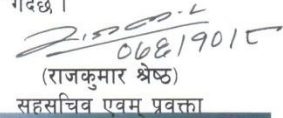 गर्दछ ।
(राजकुमार श्रेष्ठ)
सहसचिव एवम् प्रवक्ता